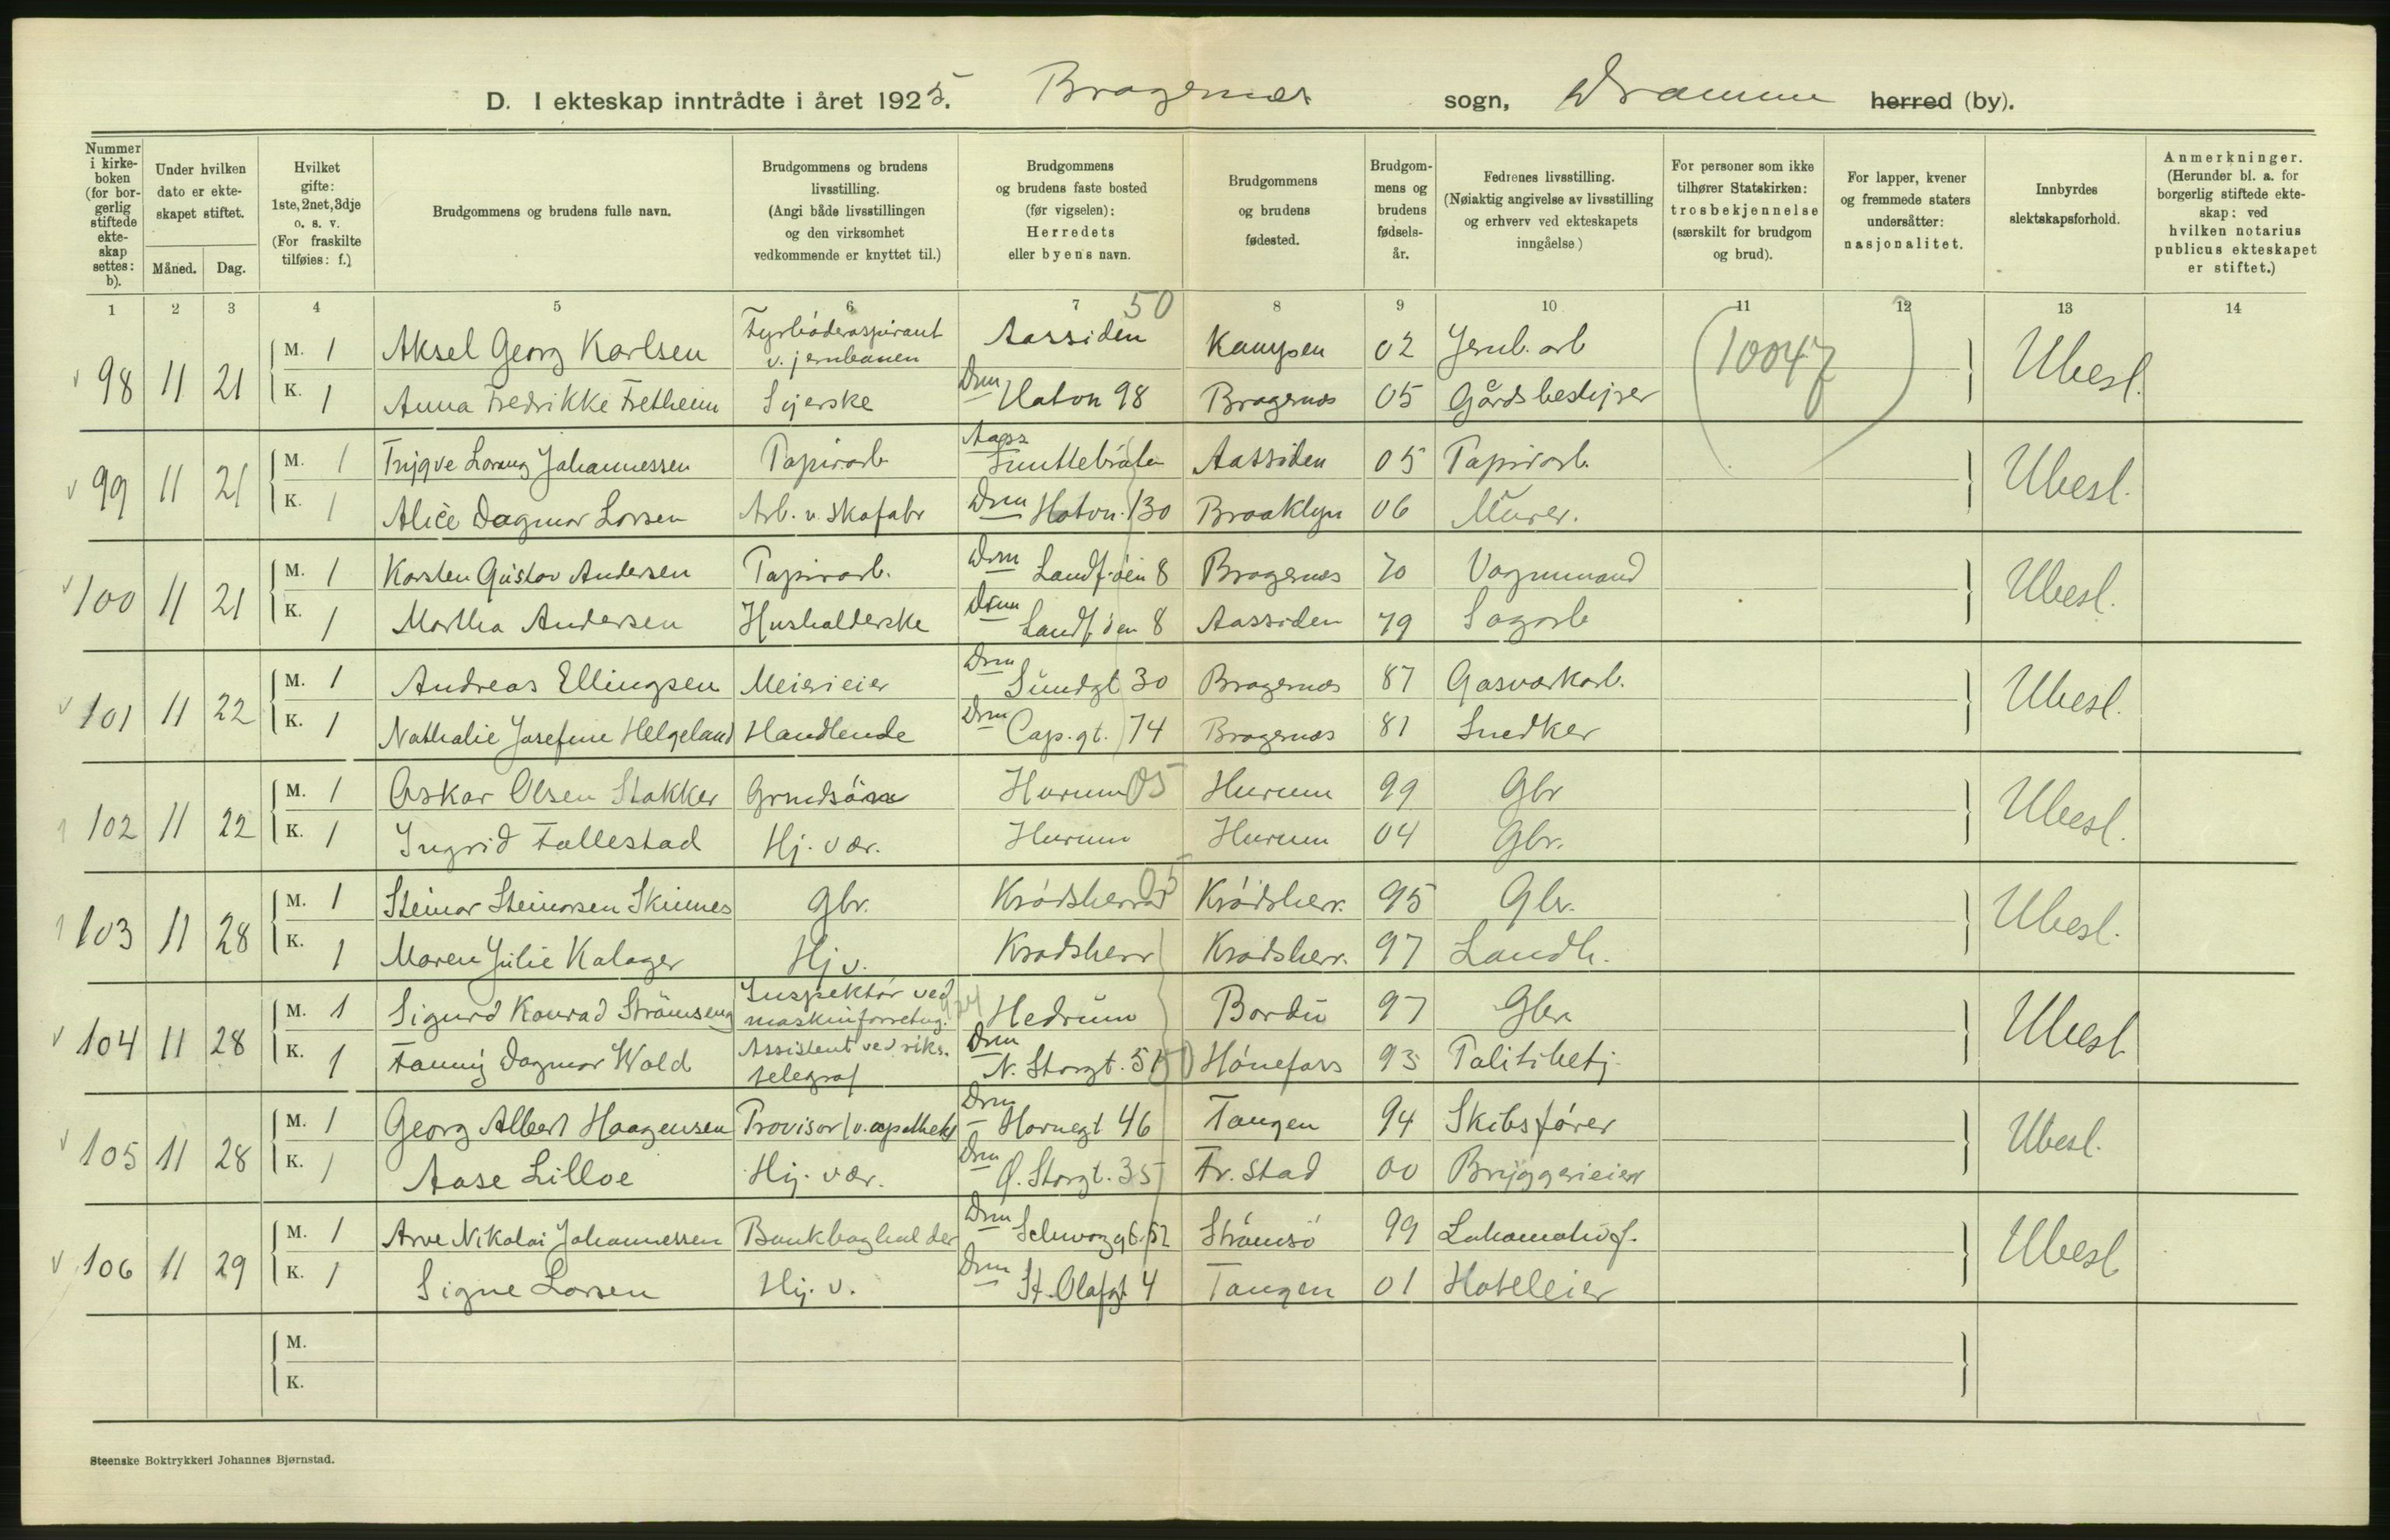 D. I ekteskap inntrådte i året 1925. Bragernes sogn, Drammen herred (by).
Nummer i kirkeboken (for borgerlig stiftede ekteskap settes: b).
Under hvilken dato er ekteskapet stiftet.
Måned. Dag.
Hvilket gifte: 1ste, 2net, 3dje o. s. v. (For fraskilte tilføies: f.)
Brudgommens og brudens fulle navn.
Brudgommens og brudens livsstilling. (Angi både livsstillingen og den virksomhet vedkommende er knyttet til.)
Brudgommens og brudens faste bosted (før vigselen): Herredets eller byens navn.
Brudgommens og brudens fødested.
Brudgommens og brudens fødselsår.
Fedrenes livsstilling. (Nøiaktig angivelse av livsstilling og erhverv ved ekteskapets inngåelse)
For personer som ikke tilhører Statskirken: trosbekjennelse (særskilt for brudgom og brud).
For lapper, kvener og fremmede staters undersåtter: nasjonalitet.
Innbyrdes slektskapsforhold.
Anmerkninger. (Herunder bl. a. for borgerlig stiftede ekteskap: ved hvilken notarius publicus ekteskapet er stiftet.)
1 2 3 4 5 6 7 8 9 10 11 12 13 14
50
98 11 21 M. 1 Aksel Georg Karlsen Fyrbøderaspirant v. jernbanen Aassiden Kampen 02 Jernb. arb (10047) Ubesl.
K. 1 Anna Fredrikke Fretheim Syerske Drm Hatvn 98 Bragernes 05 Gårdsbestyrer
99 11 21 M. 1 Trygve Lorang Johannessen Papirarb Aass Aassiden 05 Papirarb. Ubesl.
K. 1 Alice Dagmar Larsen Arb. v. skofabr Drm Hotvn. 130 Brooklyn 06 Murer.
100 11 21 M. 1 Karsten Gustav Andersen Papirarb. Drm Landf.øen 8 Bragernes 70 Vognmand Ubesl.
K. 1 Martha Andersen Husholderske Drm Landf.øen 8 Aassiden 79 Sagarb
101 11 22 M. 1 Andreas Ellingsen Meierieier Drm Sundgt 30 Bragernes 87 Gasverkarb. Ubesl.
K. 1 Nathalie Josefine Helgeland Handlende Drm Cap.gt. 74 Bragernes 81 Snedker
102 11 22 M. 1 Oskar Olsen Stokker Hurum 05 Hurum 99 Gbr Ubesl.
K. 1 Ingrid Follestad Hj. vær. Hurum Hurum 04 Gbr.
103 11 28 M. 1 Steinar Steinarsen Skinnes Gbr. Krødsherred 05 Krødsherr. 95 Gbr. Ubesl.
K. 1 Maren Julie Kalager Hj v. Krødsherr Krødsherr. 97 Landh.
104 11 28 M. 1 Sigurd Konrad Strømseng Inspektør ved maskinforretng. Hedrum Bardu 97 Gbr. Ubesl
K. 1 Fanny Dagmar Wold Assistent ved riks. telegraf Drm N. Storgt. 51 Hønefoss 93 Politibetj.
105 11 28 M. 1 Georg Albert Haagensen Provisor v. apothek Drm Havnegt 46 Tangen 94 Skibsfører Ubesl.
K. 1 Aase Lilloe Hj. vær. Drm Ø. Storgt. 35 Fr.stad 00 Bryggerieier
106 11 29 M. 1 Arve Nikolai Johannessen Bankbogholder Drm Schwarzgt. 52 Strømsø 99 Lokomotivf. Ubesl
K. 1 Signe Larsen Hj. v. Drm St. Olafgt 4 Tangen 01 Hoteleier
M.
K.
Steenske Boktrykkeri Johannes Bjørnstad.